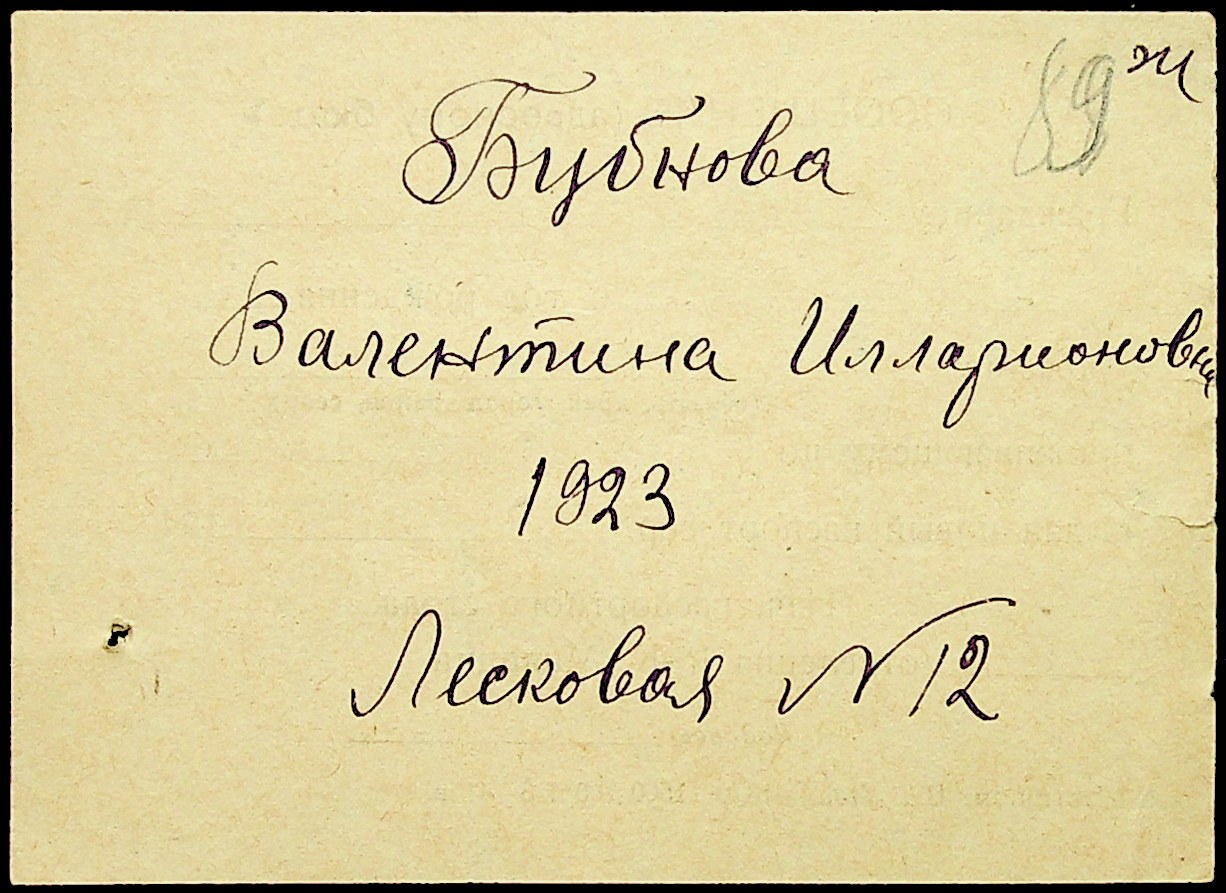 89 ж
Бубнова
Валентина Илларионовна
1923
Лесковая №12